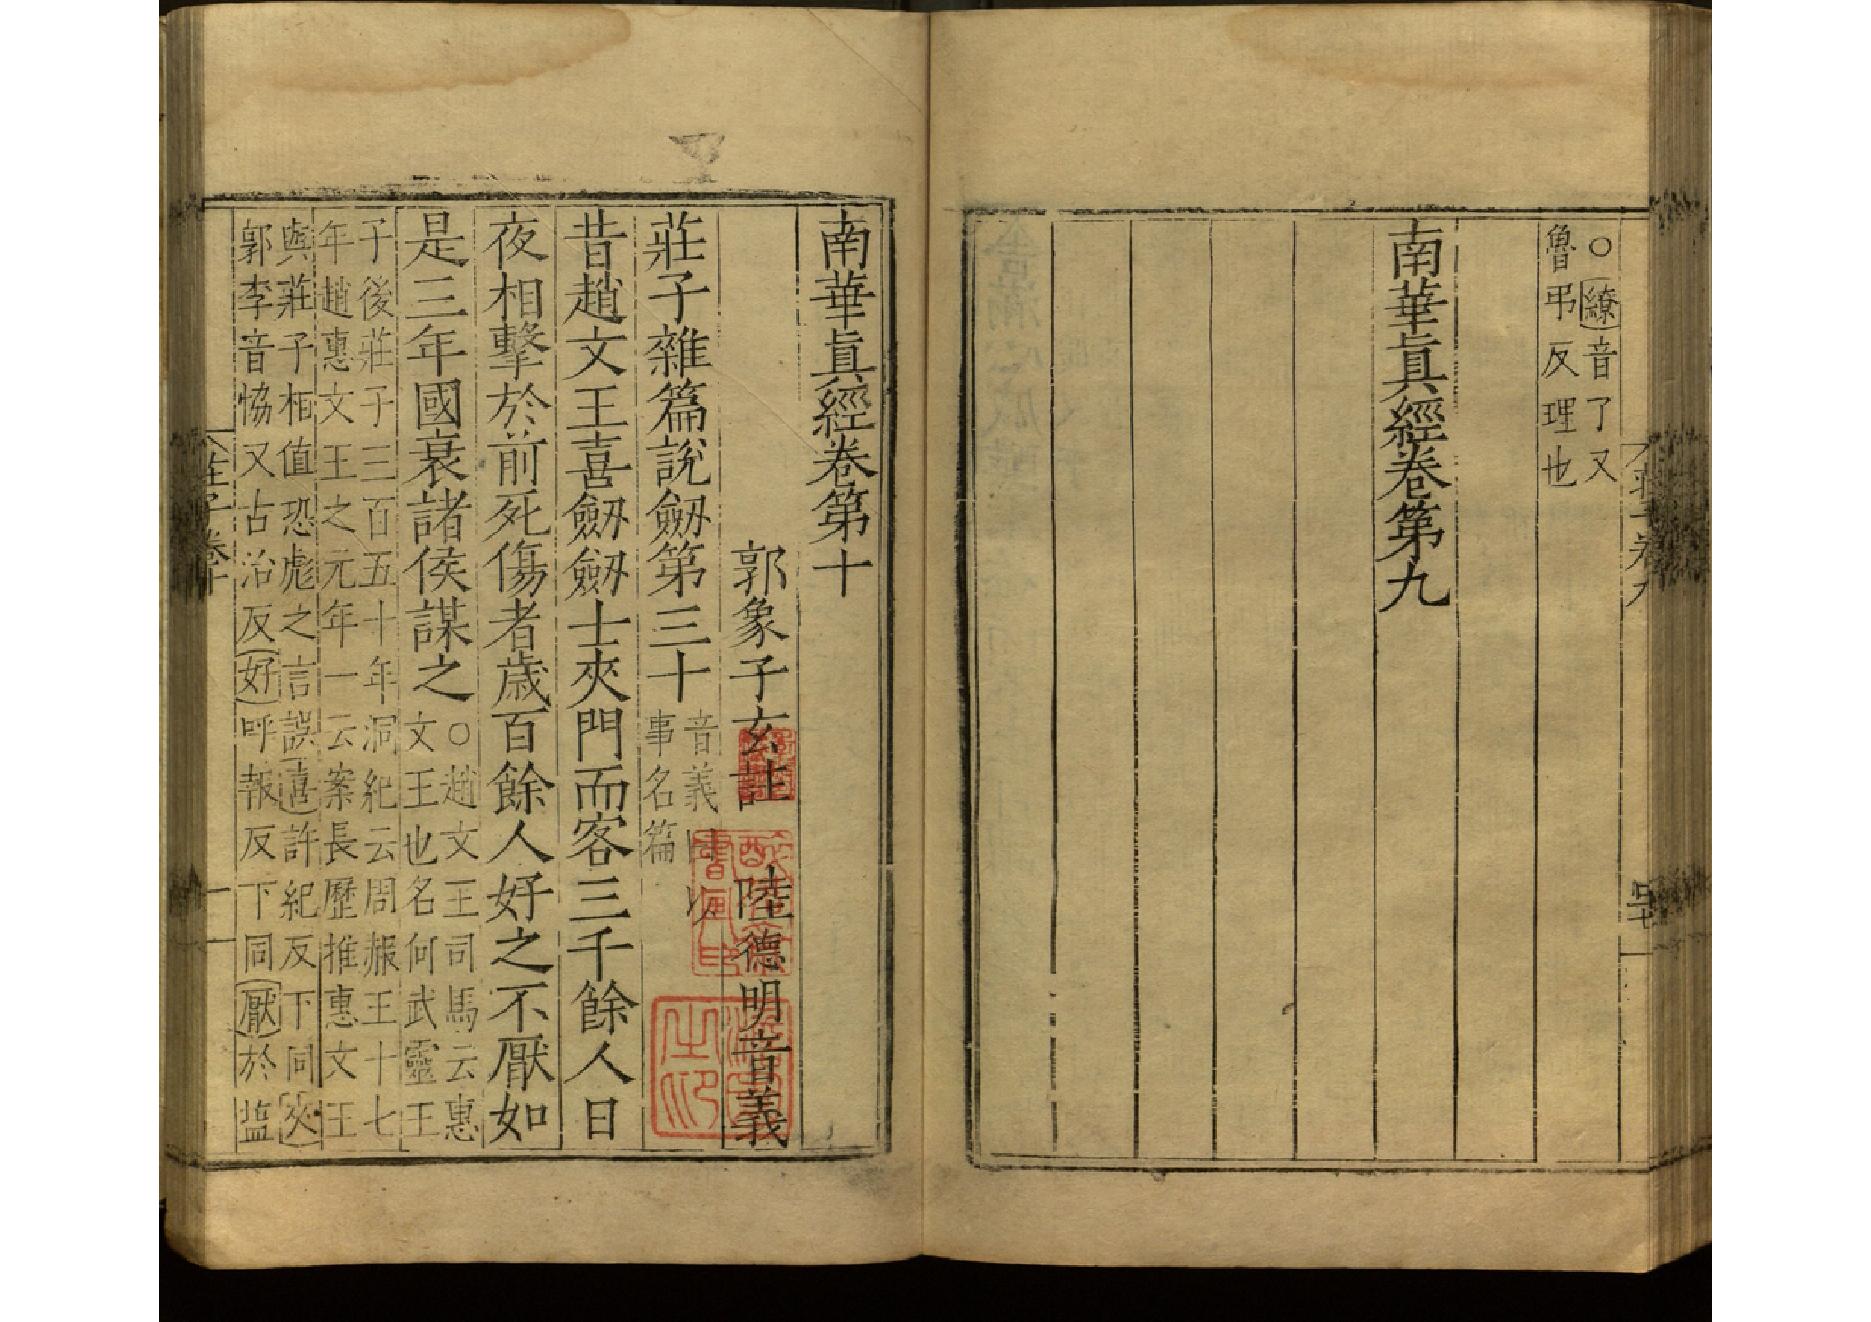 ○繚音了又
魯弔反理也
南華眞經卷第九
南華眞經卷第十
郭象子玄註 陸德明音義
莊子雜篇說劒第三十
音義
事名篇
昔趙文王喜劒劒士夾門而客三千餘人日
夜相擊於前死傷者歲百餘人好之不厭如
是三年國衰諸侯謀之
○趙文王司馬云惠
文王也名何武靈王
子後莊子三百五十年洞紀云周赧王十七
年趙惠文王之元年一云案長歷推惠文王
與莊子相值恐彪之言誤喜許紀反下同夾
郭李音恊又古洽反好呼報反下同厭於盐